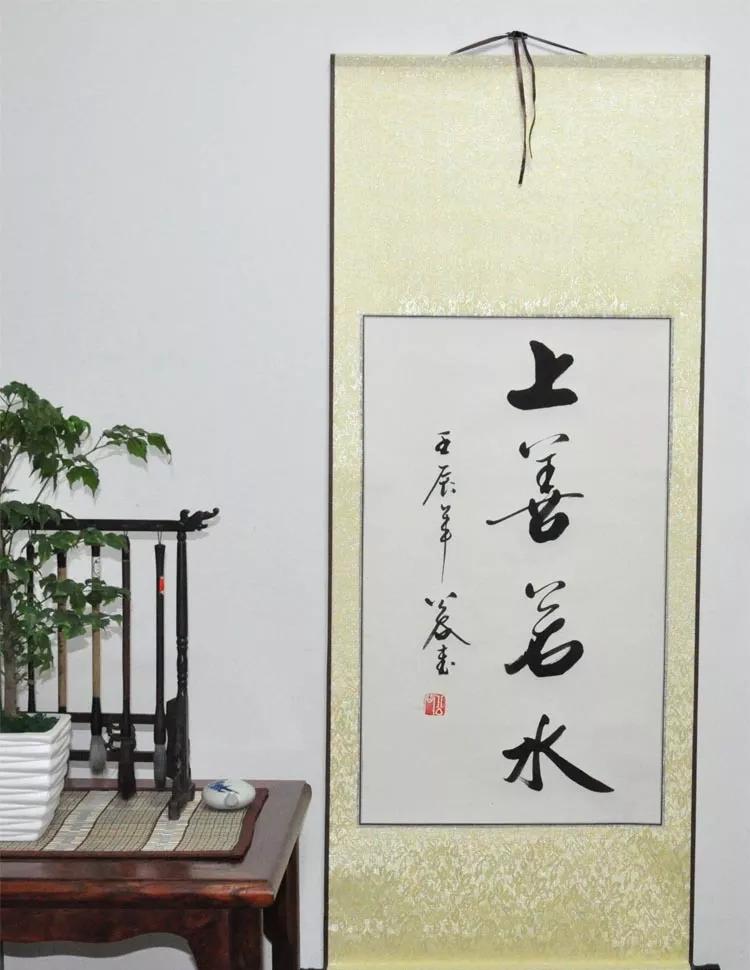 上善若水
壬辰年